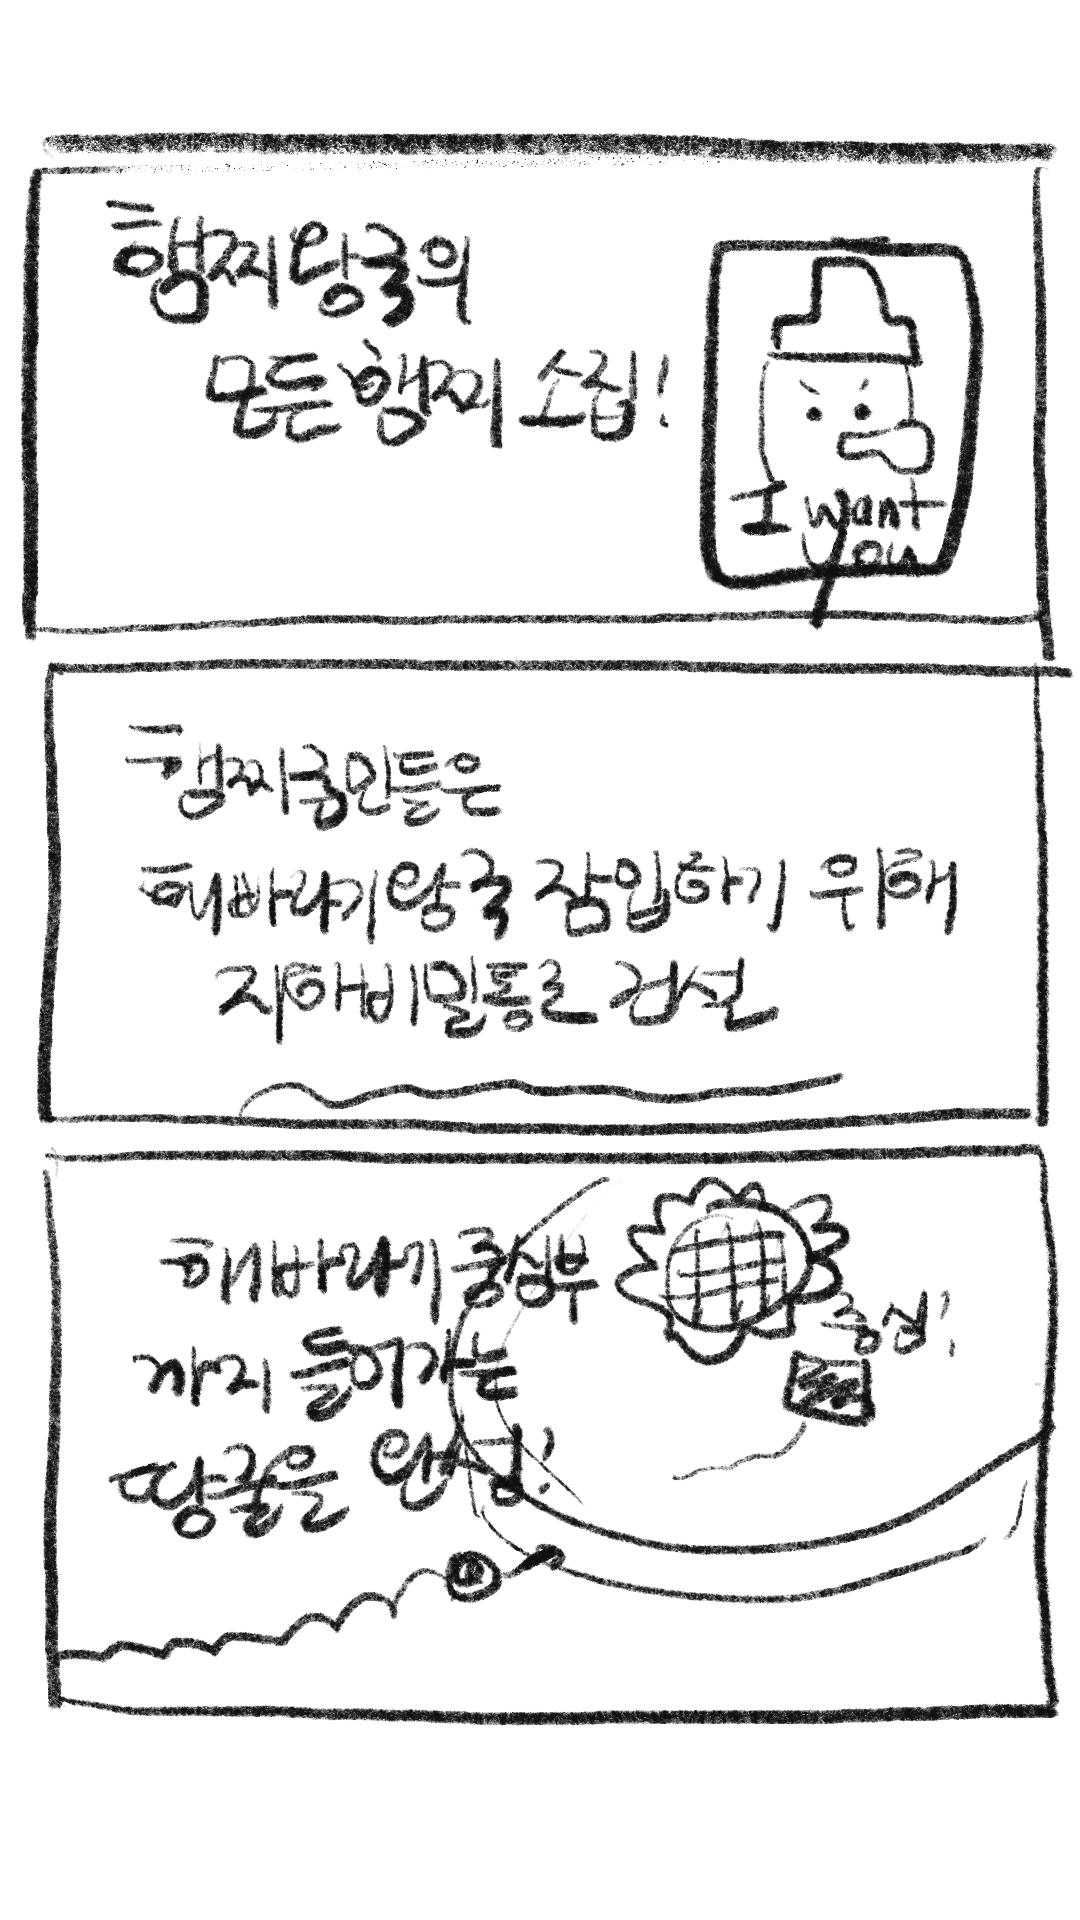 햄찌왕국의
모든 햄찌 소집!
I want
you
햄찌국민들은
해바라기왕국 잠입하기 위해
지하비밀통로 건설
해바라기 중심부
까지 들어가는
땅굴을 완성!
중심!